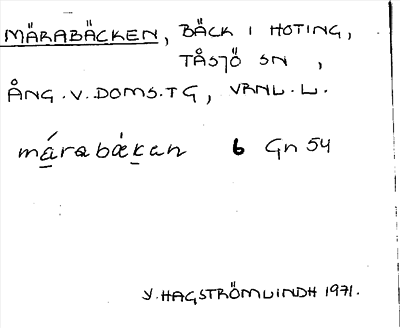 MÄRABÄCKEN, BÄCK I HOTING,
TÅSJÖ SN,
ÅNG.V.DOMS.TG, VRNL.L.
márabækan 6 Gn 54
Y.HAGSTRÖMLINDH 1971.